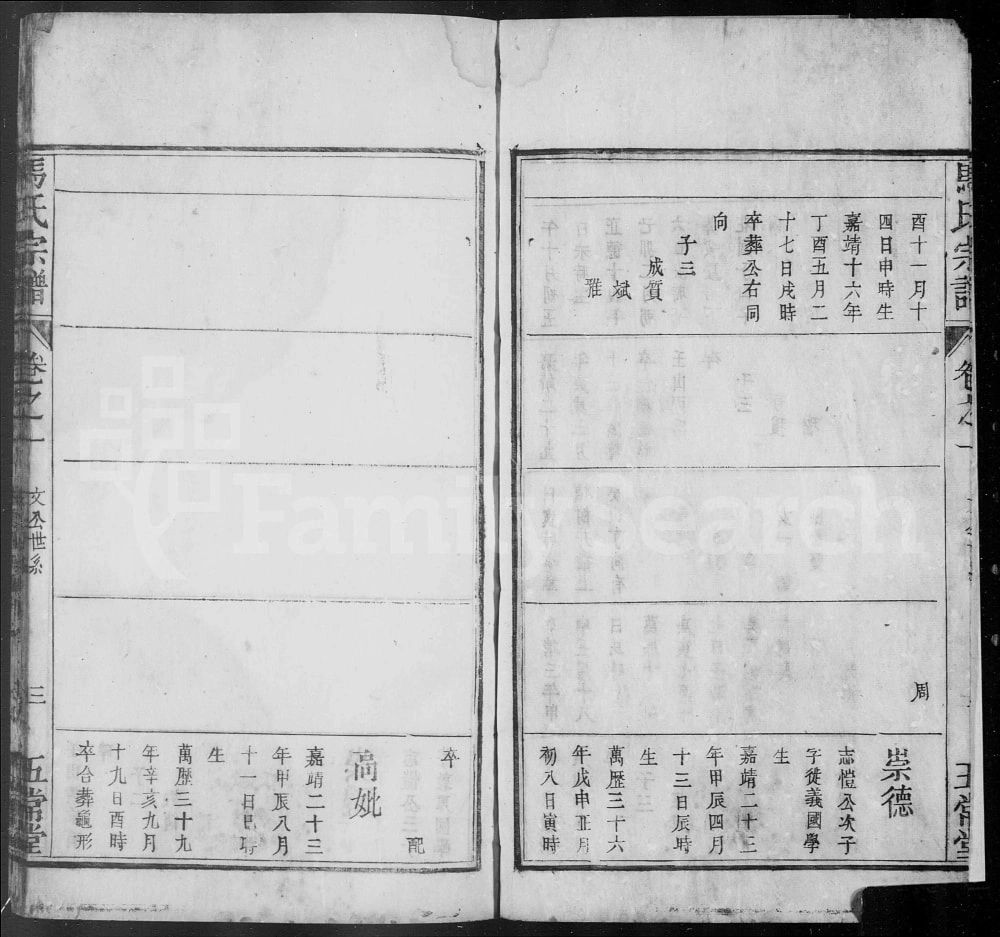 馬氏宗譜
卷之一
五常堂
酉十一月十
四日申時生
嘉靖十六年
丁酉五月二
十七日戌時
卒葬公右同
向
子三
成質
斌
周
崇德
志愷公次子
字從義國學
生
嘉靖二十三
年甲辰四月
十三日辰時
生
萬歷三十六
年戊申正月
初八日寅時
卒
配
嘉靖二十三
年甲辰八月
十一日巳時
生
萬歷三十九
年辛亥九月
十九日酉時
卒合葬龜形
馬氏宗譜
卷之一
文公世系
三
五常堂
FamilySearch